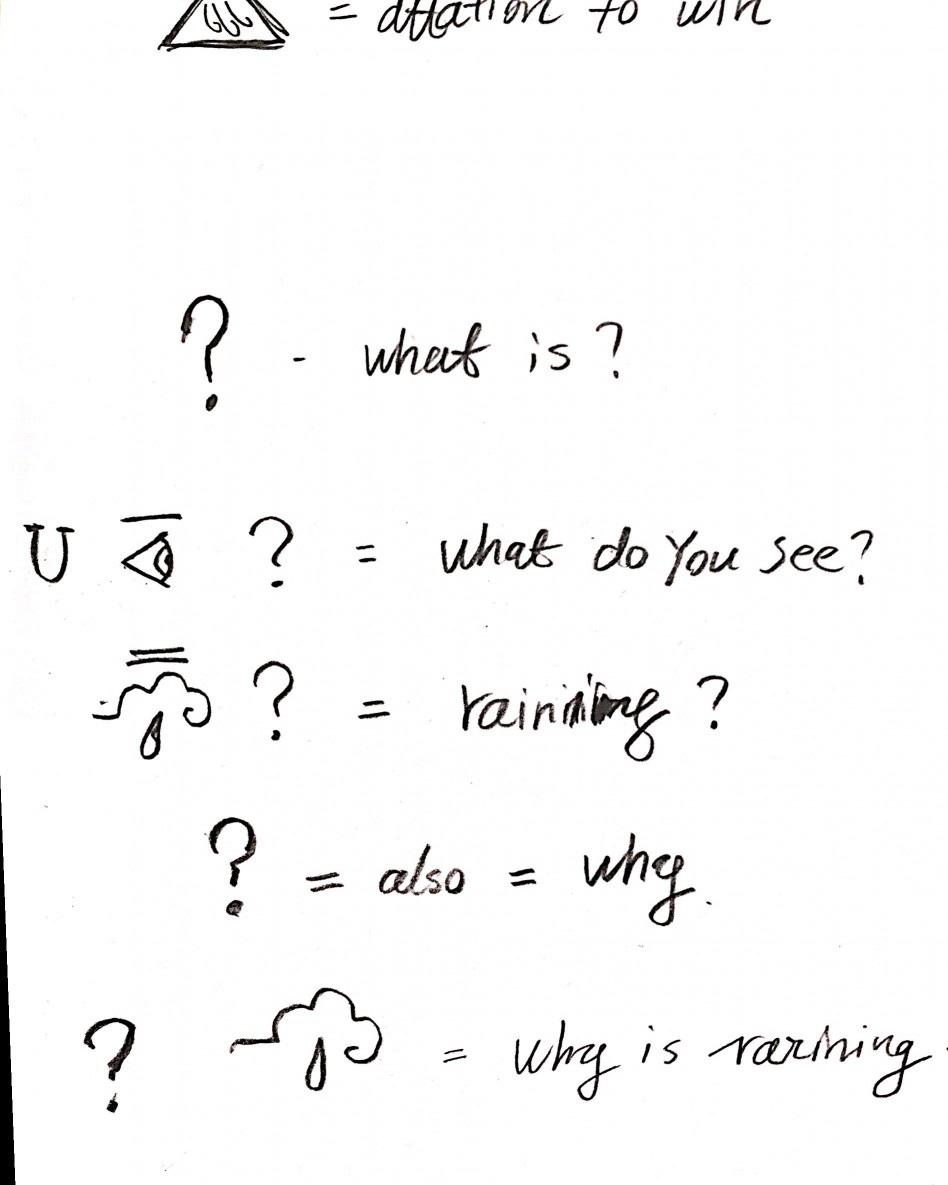 = to win
? - what is?
U ? = what do you see?
? = raining?
? = also = why.
? = why is raining